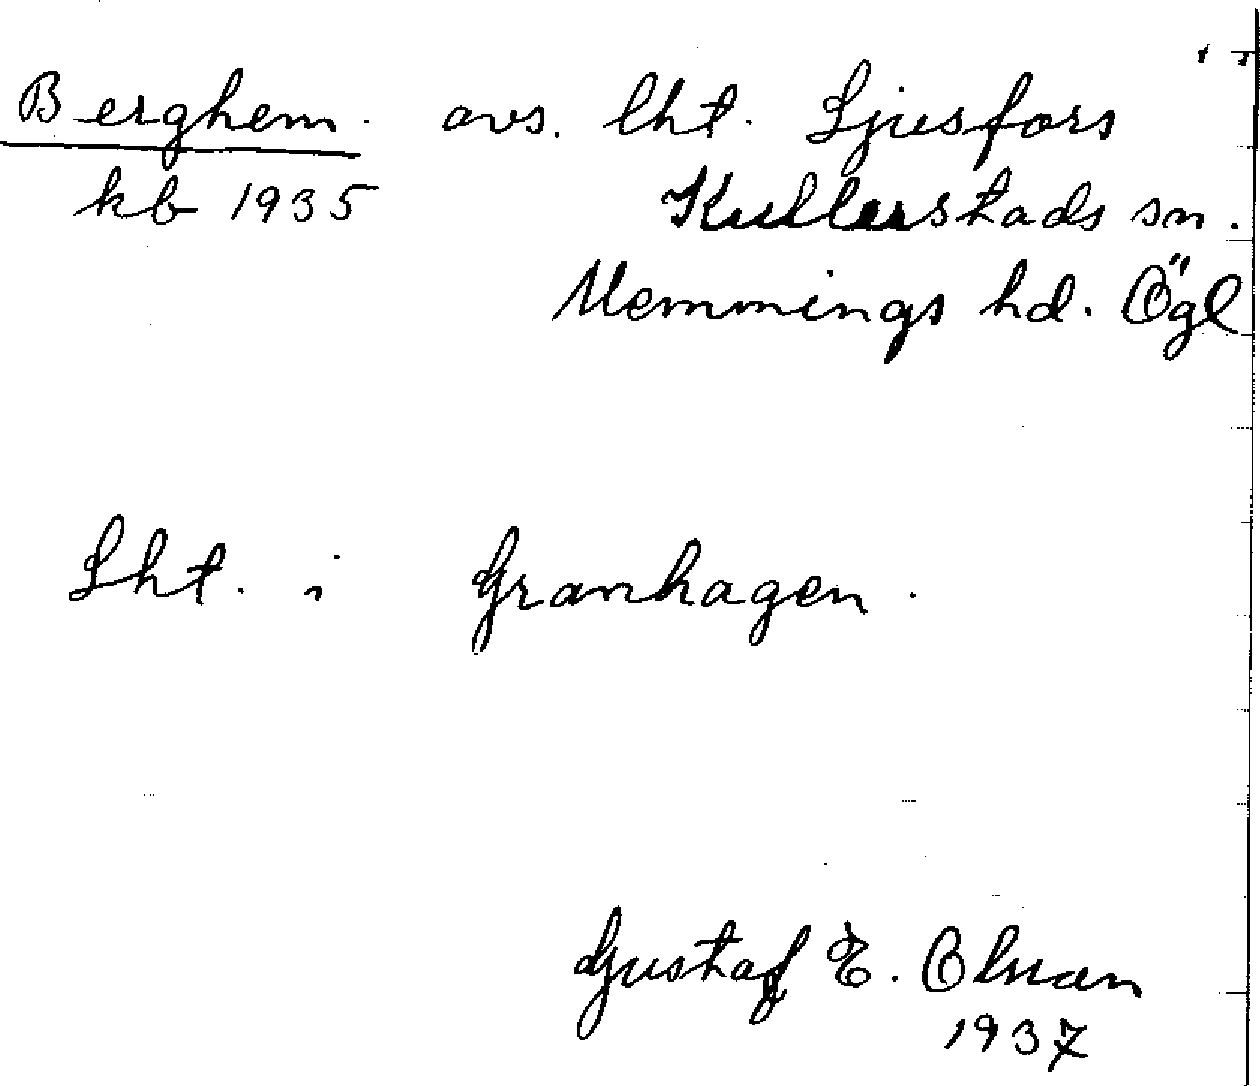 Berghem. avs. lht. Ljusfors
kb 1935 Kullerstads sn.
Memmings hd. Ögl
Lht. i Granhagen.
Gustaf E. Olsson
1937